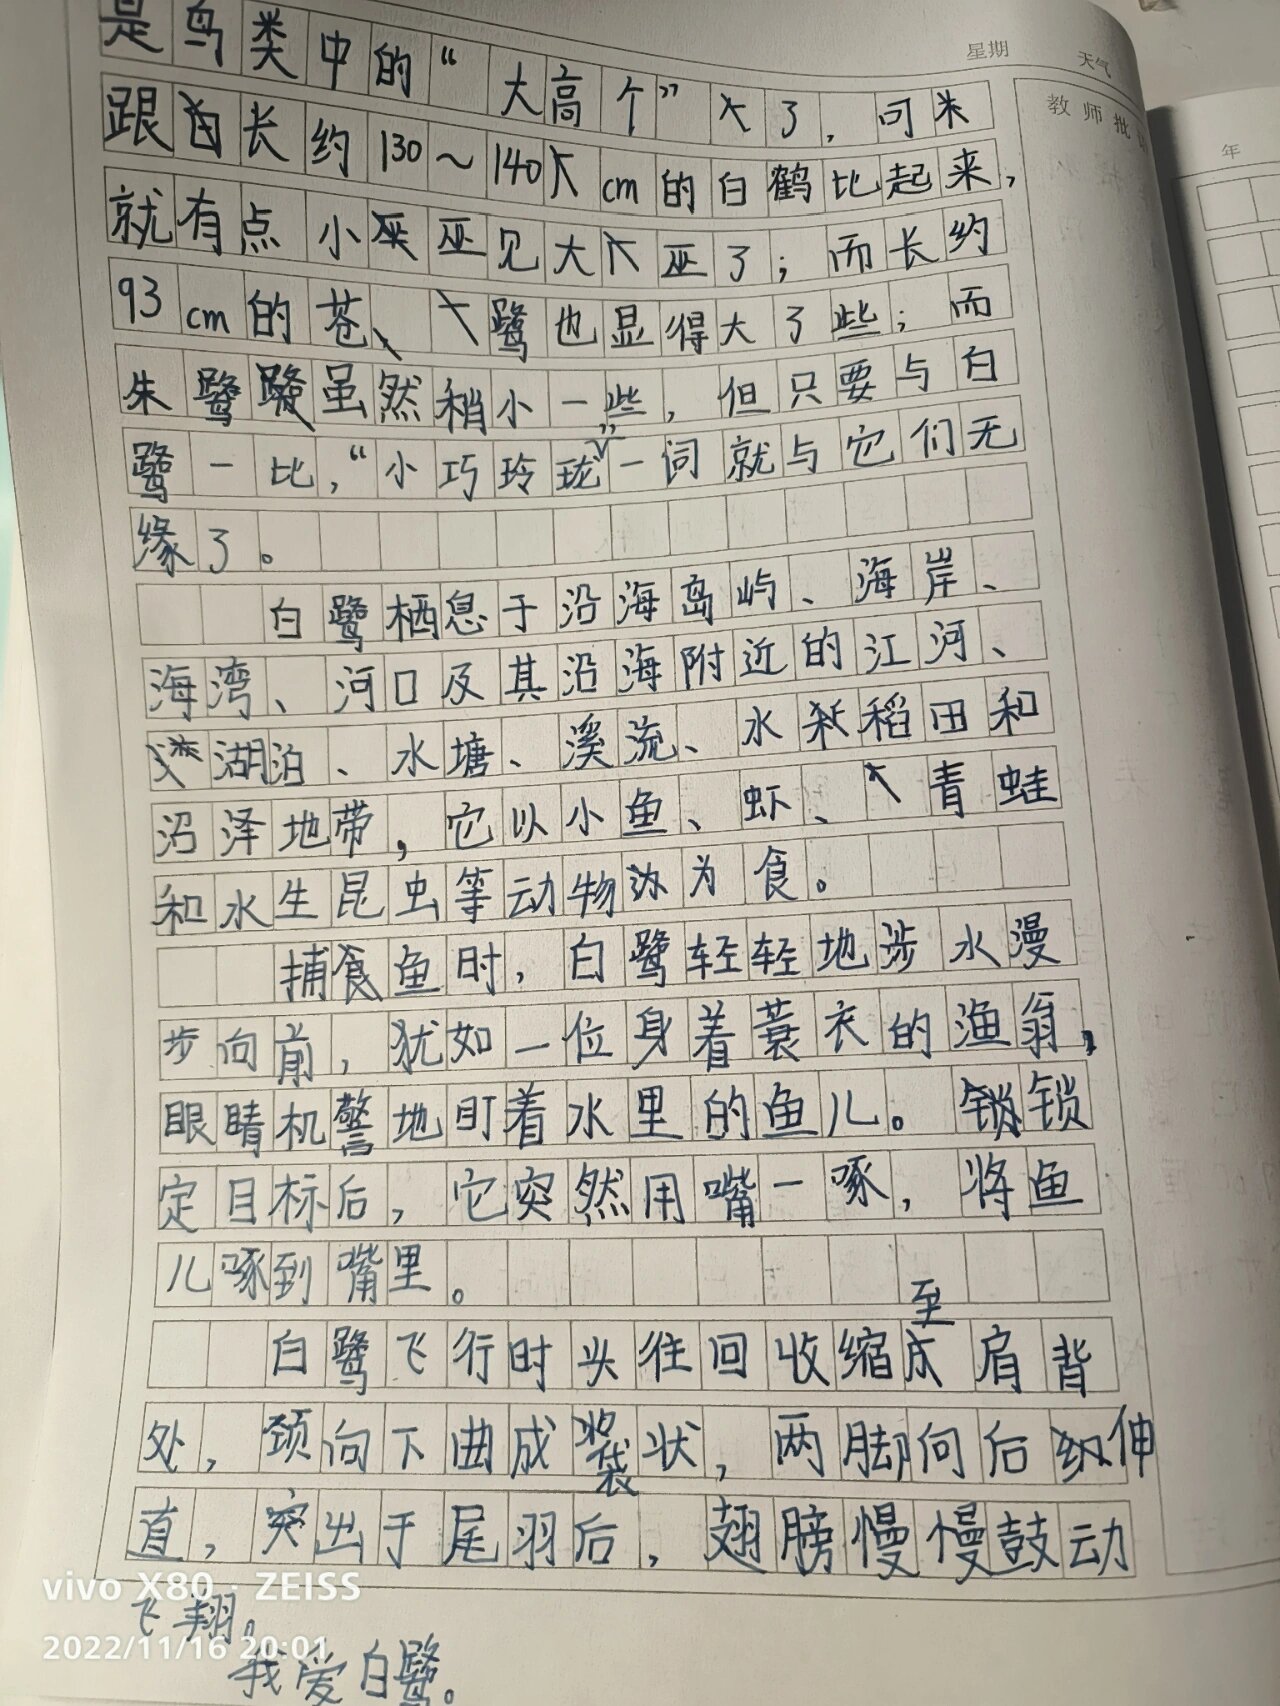 星期 天气
教师批
年
是鸟类中的“大高个”了，可
跟白长约130～140cm的白鹤比起来，
就有点小巫见大巫了；而长约
93cm的苍鹭也显得大了些；而
朱鹭虽然稍小一些，但只要与白
鹭一比，“小巧玲珑”一词就与它们无
缘了。
白鹭栖息于沿海岛屿、海岸、
海湾、河口及其沿海附近的江河、
湖泊、水塘、溪流、水稻田和
沼泽地带，它以小鱼、虾、青蛙
和水生昆虫等动物为食。
捕食鱼时，白鹭轻轻地涉水漫
步向前，犹如一位身着蓑衣的渔翁，
眼睛机警地盯着水里的鱼儿。锁
定目标后，它突然用嘴一啄，将鱼
儿啄到嘴里。
白鹭飞行时头往回收缩至肩背
处，颈向下曲成袋状，两脚向后伸
直，突出于尾羽后，翅膀慢慢鼓动
飞翔。
我爱白鹭。
vivo X80 · ZEISS
2022/11/16 20:01